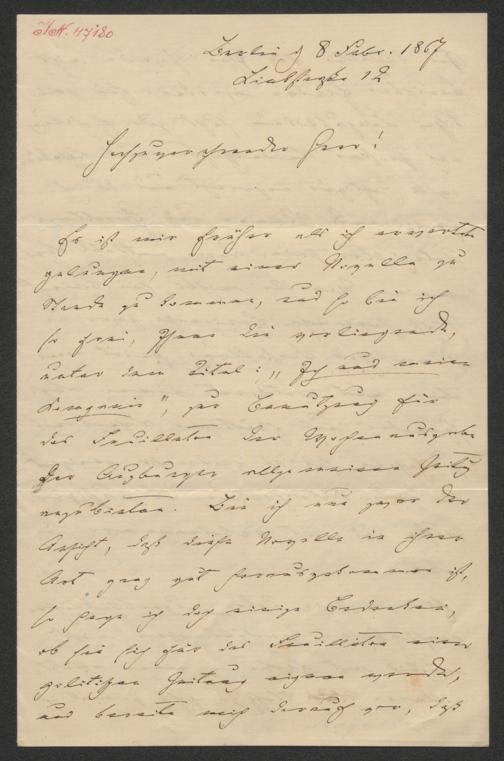 I.N. 47180
Berlin d 8 Febr. 1867
Linkstraße 12
Hochzuverehrender Herr!
Es ist mir früher als ich erwartete
gelungen, mit einer Novelle zu
Stande zu kommen, und so bin ich
so frei, Ihnen die vorliegende,
unter dem Titel: „Ich und meine
Compagnie", zur Benutzung für
das Feuilleton der Wochenausgabe
der Augsburger allgemeinen Zeitg
anzubieten. Bin ich nun zwar der
Ansicht, daß diese Novelle in ihrer
Art ganz gut herausgekommen ist,
so hege ich doch einige Bedenken,
ob sie sich für das Feuilleton einer
politischen Zeitung eignen werde,
und bereite mich darauf vor, daß